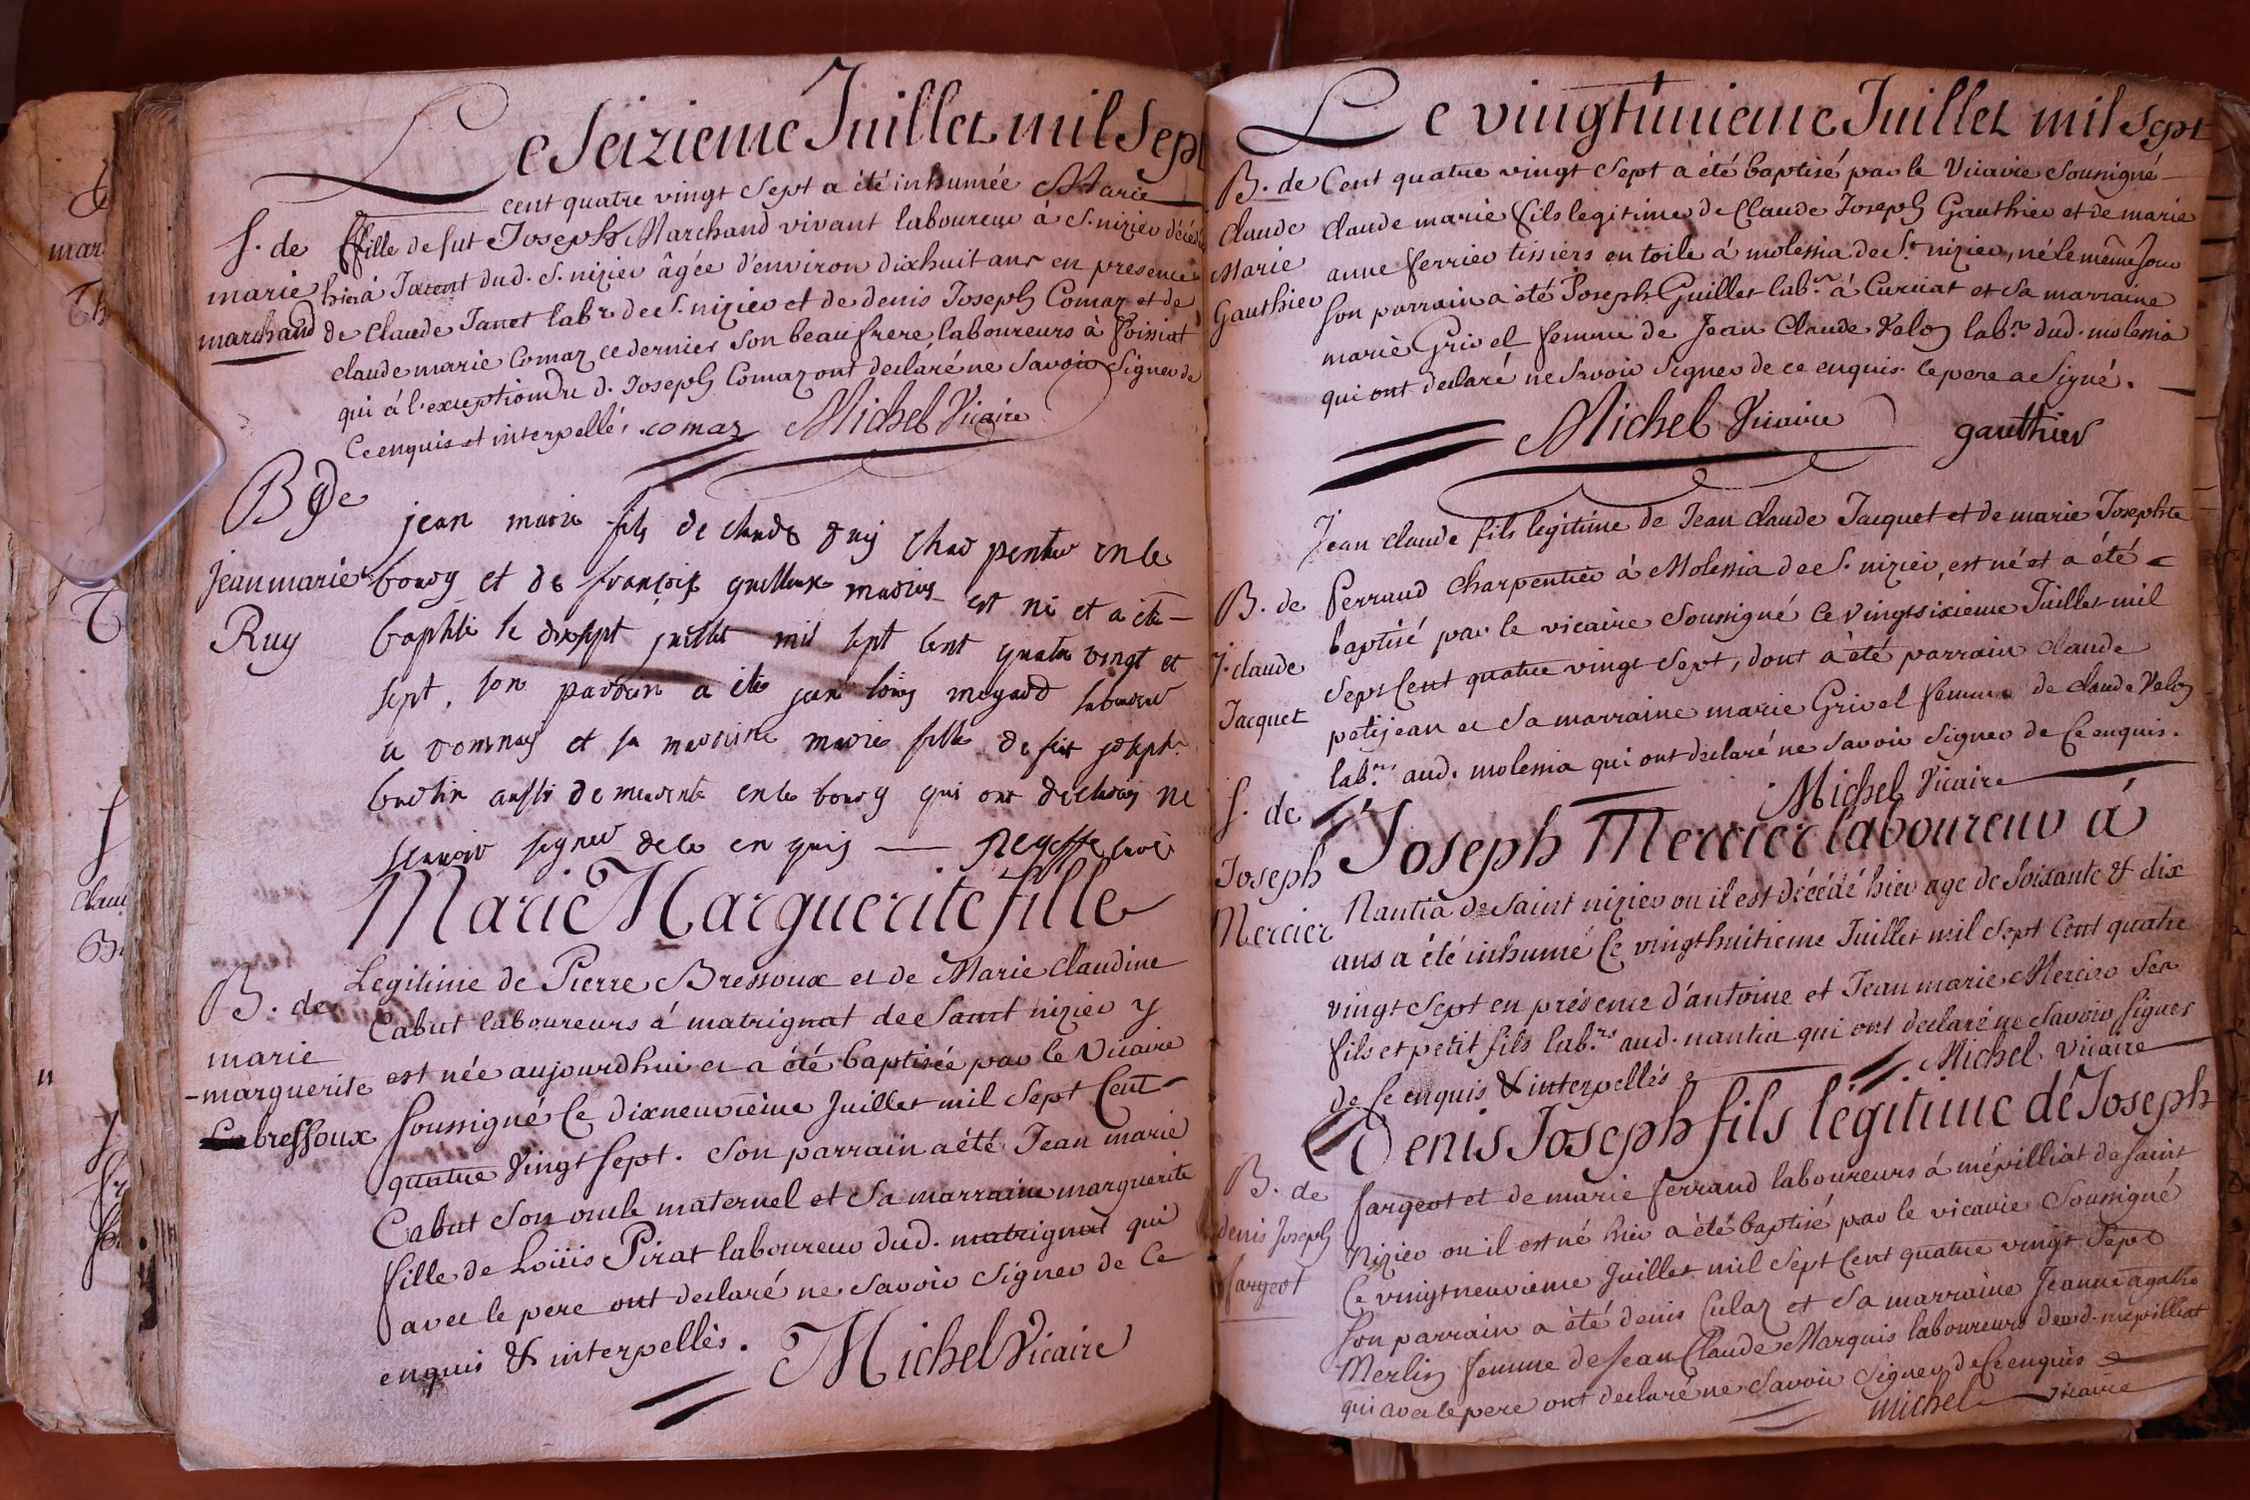 Le Seizieme Juillet mil Sept
cent quatre vingt Sept a été inhumée Marie
S. de
marie
marchand
fille de fut Joseph Marchand vivant laboureur à S. nizier décédée
hier à Jatent dud. S. nizier âgée d'environ dixhuit ans en presence
de Claude Janet labr de S. nizier et de denis Joseph Comaz et de
claude marie Comaz ce dernier Son beaufrere laboureurs à foissiat
qui à l'exception du d. Joseph Comaz ont declaré ne Savoir Signer de
Ce enquis et interpellés. comaz Michel Vicaire
B de
jean marie
Ruy
jean marie fils de claude ruy charpentier en ce
bourg et de françoise guilleux mariés est né et a été
baptisé le dixsept juillet mil sept cent quatre vingt et
sept, son parrain a été jean louis laboureur
a et sa marraine marie fille de feu joseph
aussi demeurante en ce bourg qui ont declarés ne
scavoir signer de ce enquis curé
Marie Marguerite fille
B. de
marie
marguerite
bressoux
Legitime de Pierre Bressoux et de Marie claudine
Cabut laboureurs á matrignat de Saint nizier y
est née aujourdhui et a été baptisée par le Vicaire
Soussigné Ce dixneuvieme Juillet mil Sept Cent
quatre Vingt Sept. Son parrain a été Jean marie
Cabut Son oncle maternel et Sa marraine marguerite
fille de Loüis Pirat laboureur dud. matrignat qui
avec le pere ont declaré ne Savoir Signer de Ce
enquis & interpellés. Michel Vicaire
Le vingtunieme Juillet mil Sept
B. de
claude
Marie
Gauthier
Cent quatre vingt Sept a été baptisé par le Vicaire Soussigné
claude marie fils legitime de Claude Joseph Gauthier et de marie
anne ferrier tissiers en toile á molessia de St. nizier, né le même jour
Son parrain a été Joseph Guillet labr. á Curciat et Sa marraine
marie Grivel femme de Jean Claude Velon labr. dud. molessia
qui ont declaré ne Savoir Signer de ce enquis. le pere a Signé.
Michel Vicaire gauthier
B. de
J. claude
Jacquet
Jean claude fils legitime de Jean claude Jacquet et de marie Josephte
Perraud charpentier à Molessia de S. nizier, est né et a été
baptisé par le vicaire Soussigné Ce Vingtsixieme Juillet mil
Sept Cent quatre vingt Sept, dont a été parrain claude
petijean et Sa marraine marie Grivel femme de claude Velon
labrs. aud. molessia qui ont declaré ne Savoir Signer de Ce enquis.
Michel Vicaire
S. de
Joseph
Mercier
Joseph Mercier laboureur á
Nantia de Saint nizier ou il est décédé hier age de Soixante & dix
ans a été inhumé Ce vingthuitieme Juillet mil Sept Cent quatre
vingt Sept en présence d'antoine et Jean marie Mercier Ses
fils et petit fils labrs. aud. nantia qui ont declaré ne Savoir Signer
de Ce enquis & interpellés. Michel Vicaire
B. de
denis Joseph
fargeot
Denis Joseph fils legitime de Joseph
fargeot et de marie ferrand laboureurs á mépilliat de Saint
Nizier ou il est né hier a été baptisé par le vicaire Soussigné
Ce vingtneuvieme Juillet mil Sept Cent quatre vingt Sept
Son parrain a été denis Culaz et Sa marraine Jeanne agathe
Merlin femme de Jean Claude Marquis laboureurs deud. mépilliat
qui avec le pere ont declaré ne Savoir Signer de Ce enquis
Michel Vicaire